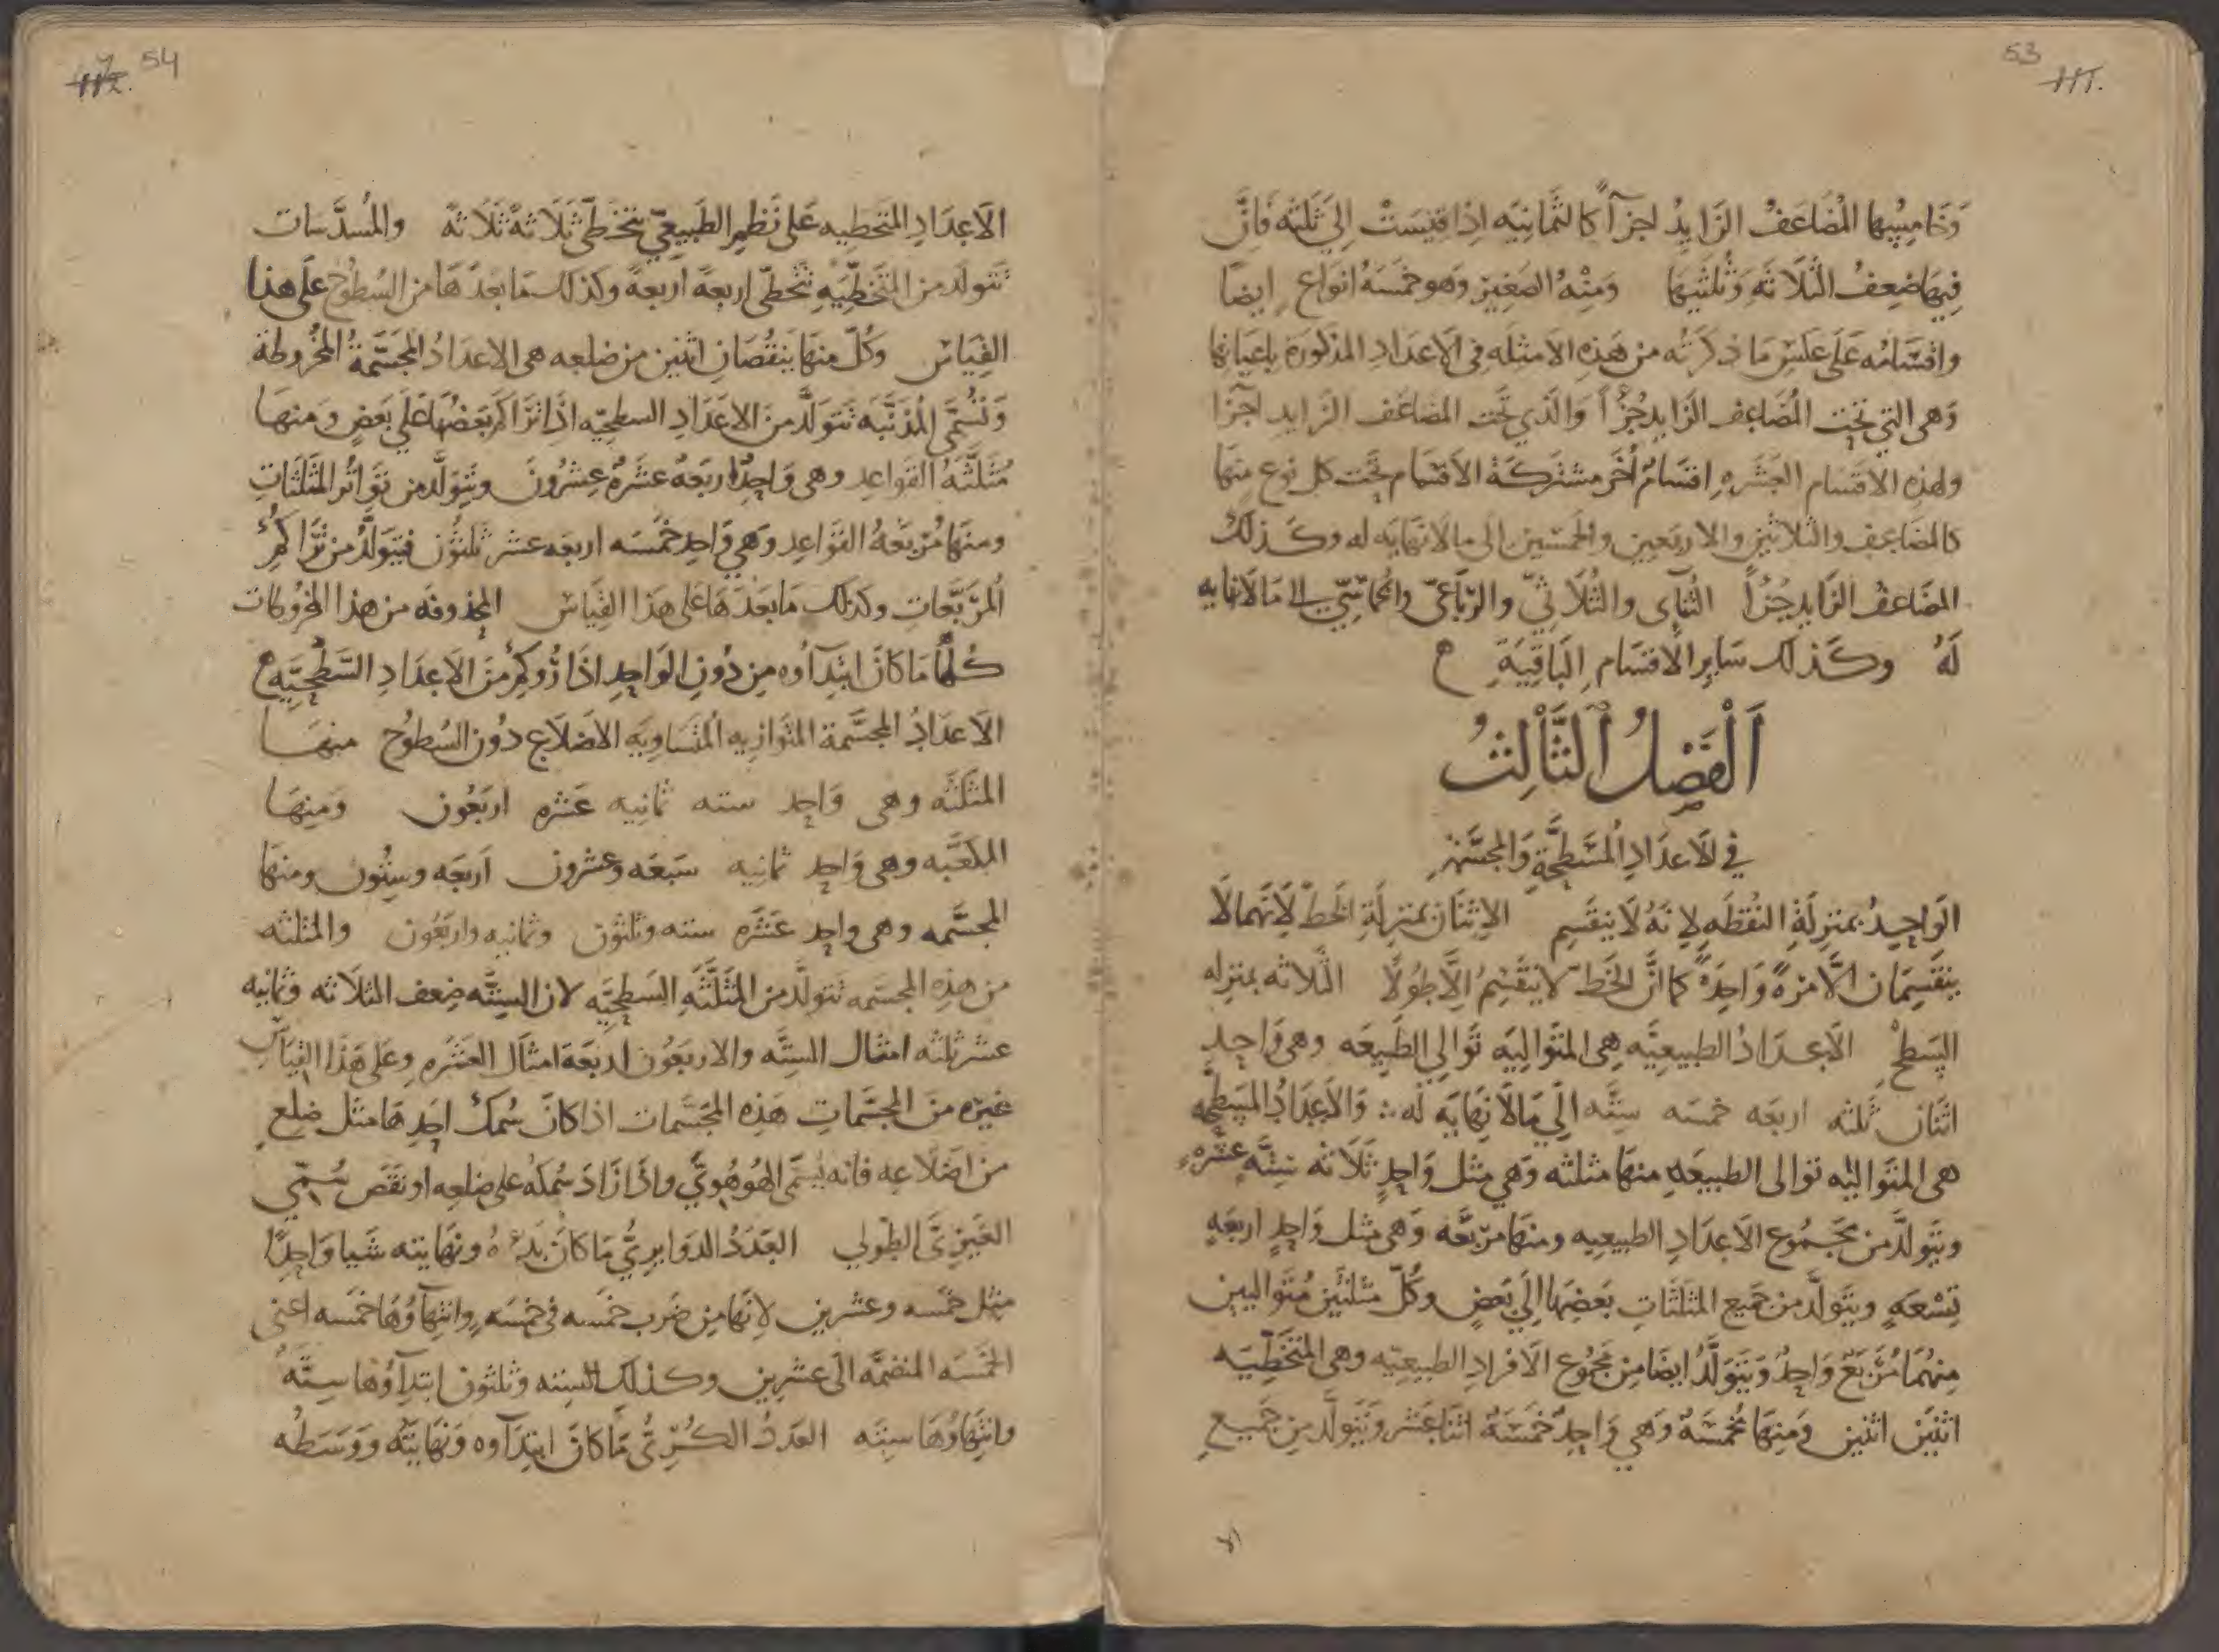 53
وَخَامِسُهَا المُضَاعَفُ الزَايِدُ اجزآً كالثمَانِيَه اِذَا قِيسَتْ اِلَي ثَلثه فَاِنَّ
فِيهَا ضِعِفُ الثَلَاثَه وَثُلثَيْهَا وَمِنْهُ الصَغِيرْ وَهو خَمسَهُ انوَاعٍ ايضاً
واقسَامُه عَلَى عَكسِ مَا ذكرتُه من هَذِهِ الامثِلَه فى الاعدَادِ المذكورَة باعيَانِها
وَهى التي تحت المُضَاعِف الزَايد جُزْأً وَالَّذي تحَت المضاعَف الزَايدِ اجزآ
ولهذِهِ الاقسَام العَشَرهِ اقسَامٌ اُخَر مشتركَة الاقسَام تحَت كل نوعٍ مِنهَا
كالمضَاعِف والثلاثين والاربَعين والخمسين الى مالا نهايَه له وكَذلكَ
المضَاعَفُ الزَايد جُزْأً الثنآى والثُلَاثىّ والرّبَاعىّ والخماسّى الى مَا لَانهايه
لَهُ وكَذلك سَايرِ الاقسَامِ البَاقِيَةِ ه
اَلْفَصْلُ الثَّالِثُ
فى الاعدَادِ المُسَطَّحَةِ وَالمجسَّمَةِ
الوَاحِدُ بمنزلَةِ النُقطَه لِانَهُ لَا ينقَسِم الاثنَان بمنزلَةِ الخَطّ لِانهمَالَا
ينقَسِمَان الَّا مَرّةً وَاحِدَةً كما انَّ الخَطّ لا ينقَسِمُ اِلَّا طُولًا الثلاثه بمنزله
السَطحْ الاعدَادُ الطبيعيَّه هى المتَوَاليَه تَوَالى الطَبيعَه وهى وَاحِد
اثنَان ثَلثه اربعَه خمسَه سِتَّه اِلَي مَالَا نِهَايَه لَه ؞ وَالاَعدَادُ المسَطحَه
هى المتوَاليَه توالى الطبيعَهِ منهَا مثلثه وَهي مثِل وَاحِدٍ ثلَاثَه سِتَّهٍ عشَرهٍ
ويتَولَّد من مجمُوع الاَعدَادِ الطبيعيه ومنهَا مربّعَه وَهى مثل وَاحِدٍ اربعَهٍ
تِسْعَهٍ ويتوَلَّد من جَميع المثلثَاتِ بَعضِهَا اِلَي بَعضٍ وكُلّ مثلثَينِ مُتَواليَين
مِنهُمَا مُرَبَّعٌ وَاحِدٌ وَيَتَوَلَّدُ ايضَا مِن مجمُوع الَافرادِ الطبيعيّه وهى المتَخَطّيَه
اثنَيَنْ اثنين وَمِنهَا مُخَمسَّةٌ وَهي وَاحِدٌ خمسَةٌ اثنَا عَشَر وَيَتَولَّد مِن جَميعِ
54
الَاعدَادِ المتَخَطيه عَلى نَظمِ الطَبيعىّ بتخَطّى ثَلَاثَهٌ ثَلَاثَهٌ والمُسدَّسَات
تَتَولّد من المتخَطّيَهِ تتَخَطّى اربعهً اربعهً وكذلك مَا بَعدَهَا من السُطُوح عَلَي هذا
القِيَاس وكُلّ منهَا بِنقُصَانِ اثنين من ضلعِه هى الاعدَادُ المجَسَّمةُ المخروطة
وَتُسَمَّى المُذَنَّبَه تَتَولَّد من الاعدَادِ السطحيّه اذَا تَرَاكَم بَعضُهَا عَلَي بَعضٍ وَمِنهَا
مُثَلَّثَهُ القَواعِدِ وهى وَاحِدٌ اربَعهٌ عشَرهٌ عِشرُونَ ويتَولَّد من تَواتُر المثَلَثَاتِ
ومنهَا مُرَبعَهُ القوَاعِدِ وَهي وَاحِد خَمْسَه اربعَه عشر ثَلثُون فيتَولَّدُ من ترَاكُمِ
المُرَبَّعَات وكذلك مَا بَعدَهَا عَلى هَذا القِيَاس المحذوفه من هذا المخروطات
كلَّما مَا كَانَ ابتِدَآوُه مِن دُونِ الوَاحِدِ اذَا رُوكِمَ مِنَ الاعدَادِ السَّطْحِيَّه ه
الاعدَادُ المجسَّمة المتوَازيه المُتسَاويَه الاضلَاع دُون السُطُوح منهَا
المثلثَه وهى وَاحِد سته ثمانِيه عَشره اربَعُون وَمِنهَا
المكعَّبَه وهى وَاحِد ثمانِيه سَبعَه وعشرون اَربعَه وسِتُون ومنهَا
المجسَّمه وهى واحِد عَشَره سته وثلثون وثمانيه واربَعُون والمثلثه
من هذِه المجسَمه تَتَولّد من المثَلَّثَهِ السَطحيَّه لان السِتَّه ضِعف الثلَاثه وثمانِيه
عشر ثلثه امثال السِتَّه والاربَعُون اربعَة امثَال العَشَره وعَلى هَذَا القِيَاس
غيرَه منَ المجسَّمَاتِ هَذِه المجسَّمَات اذا كَان سُمكُ احَدِهَا مثل ضلعٍ
من اضلَاعِه فانه يُسَمَّى الهُوهُويَّ واذَا زَادَ سُمكه على ضلعِه او نقَصَ سُمّي
الغَيرىَّ الطولي العَدَدُ الدوَايرىُّ مَا كَانَ بَدءُهُ ونهَايته شَيا وَاحِدًا
مثل خمسَه وعشرين لِانَها مِن ضَرب خمسه فى خمسَه وانتهآوُهَا خمسَه اعنى
الخمسَه المنضمَّه الَى عشرين وكذلك السِته وثلثون ابتدآوُها سِتَّهٌ
وانتهآوُهَا سِته العدَدُ الكُرىُّ مَا كَانَ ابتدَآوه وَنهَايته وَوَسَطُه